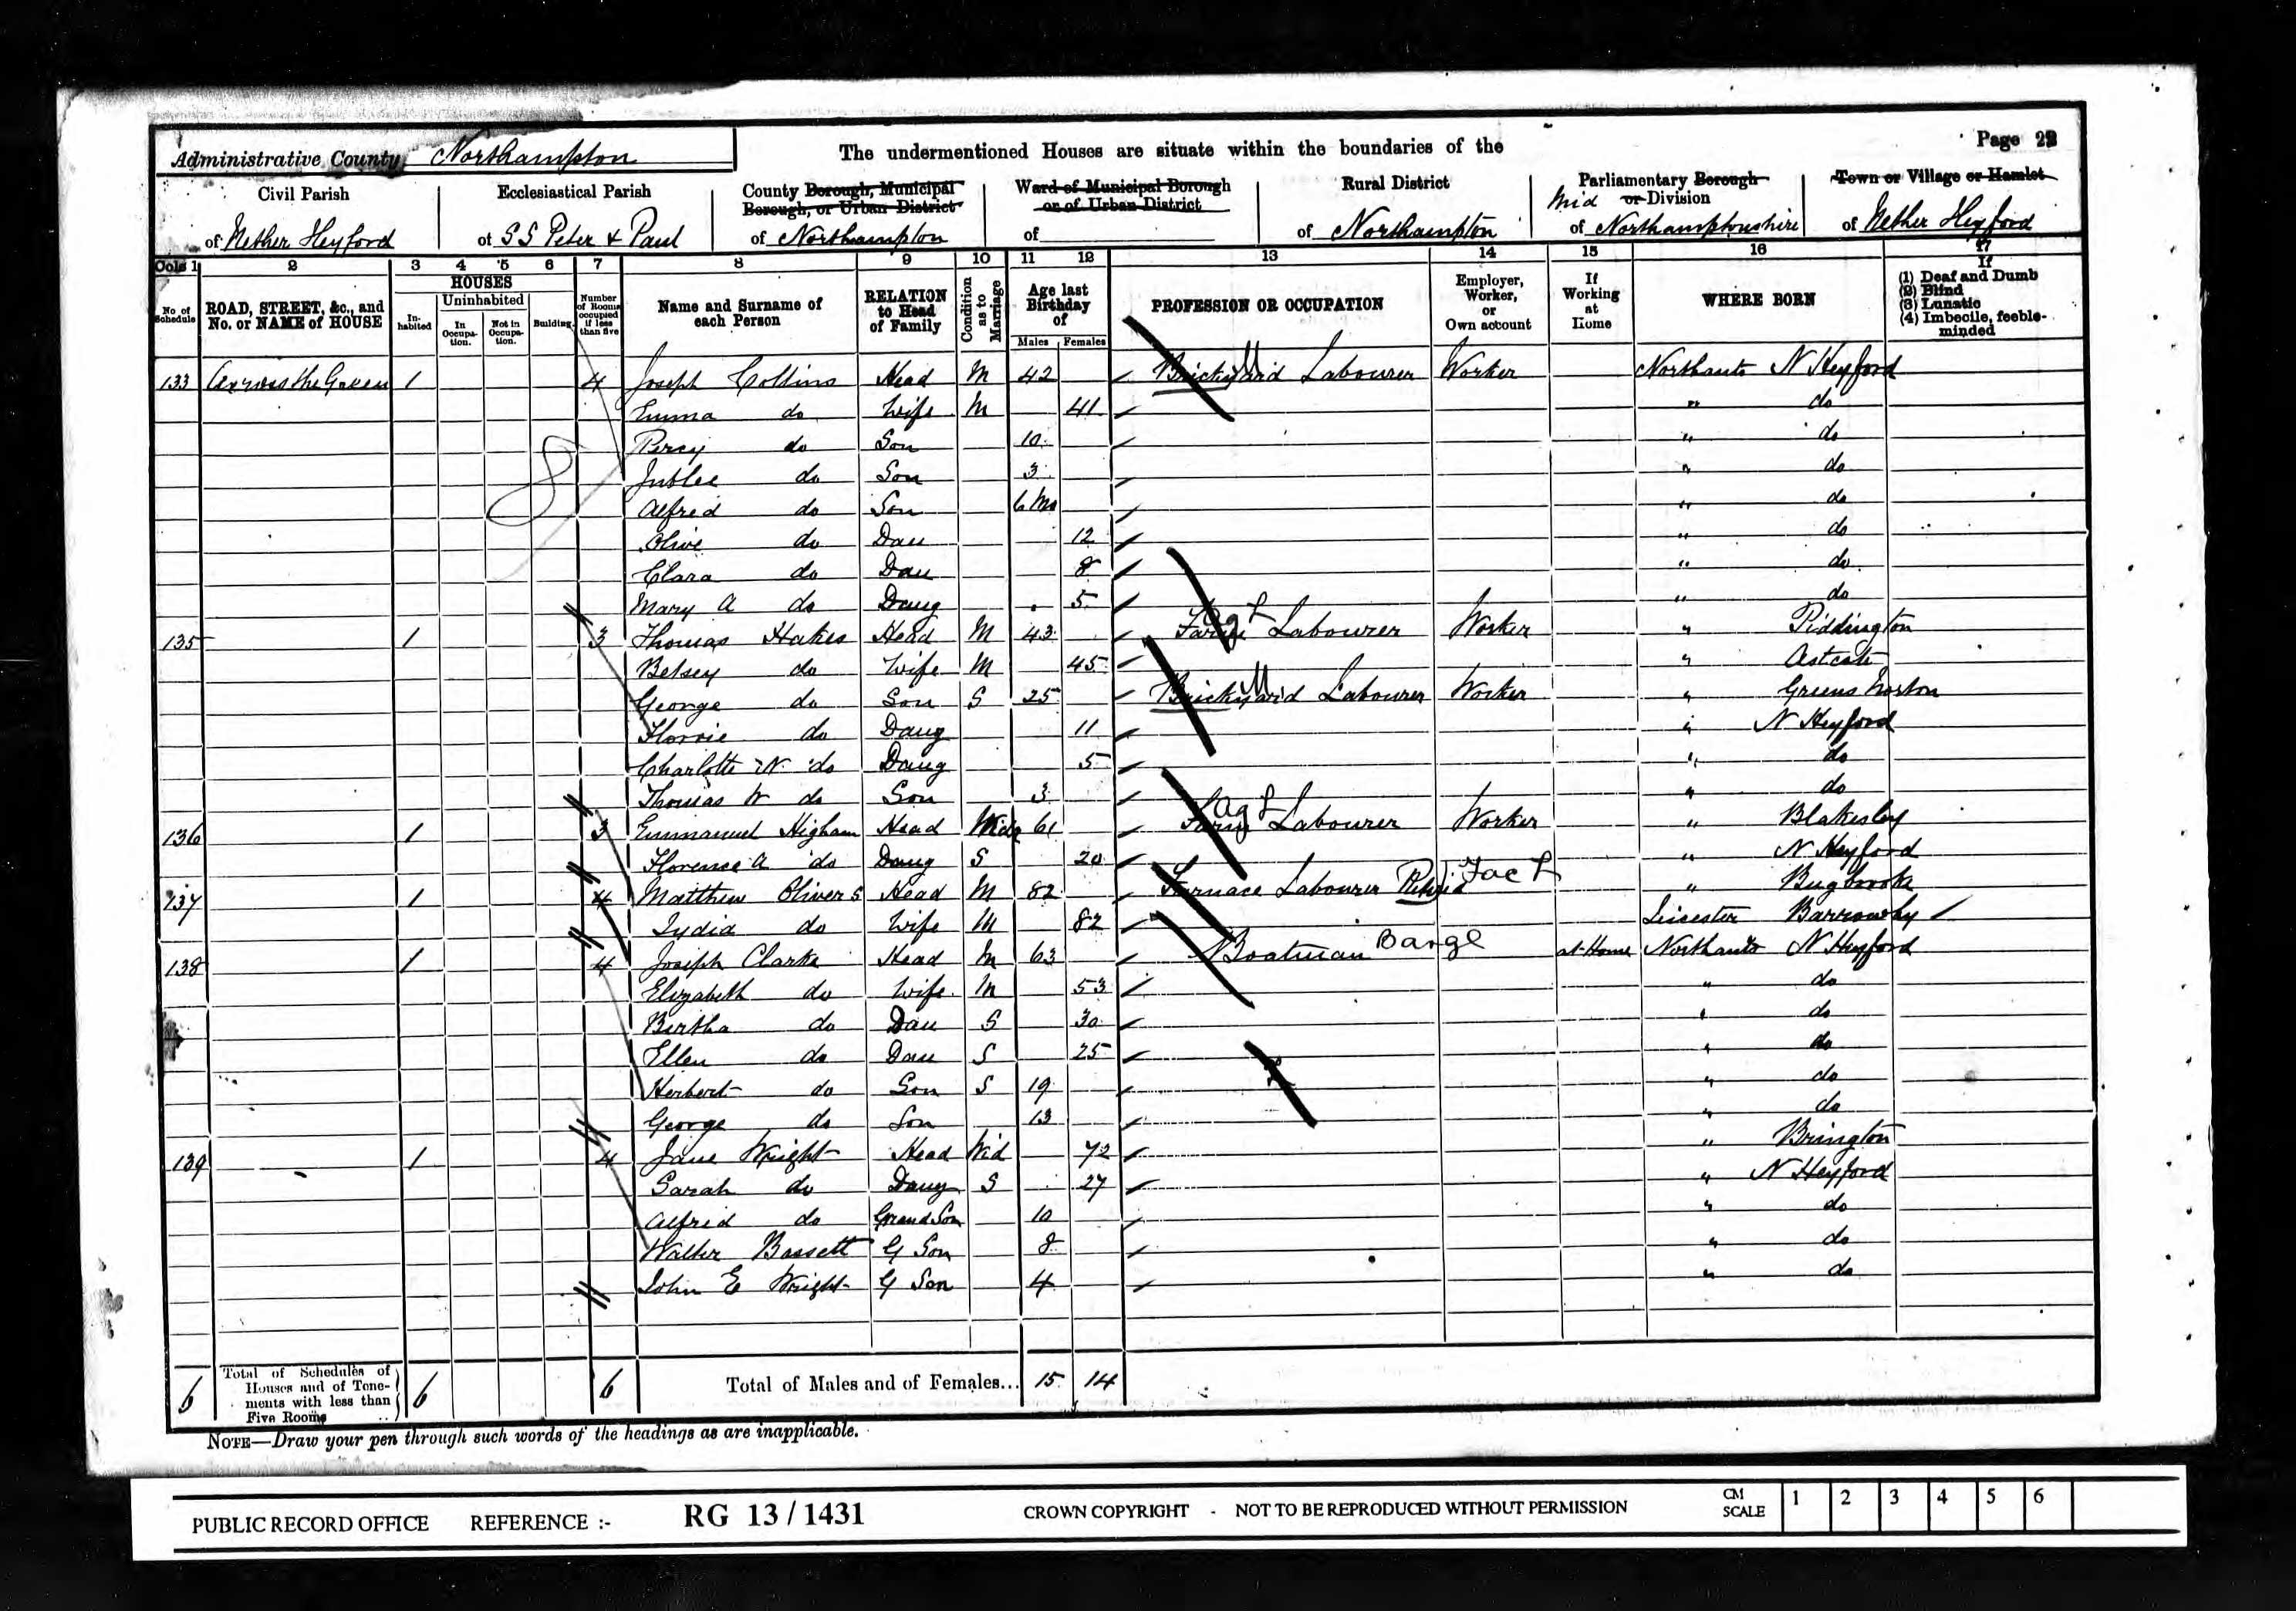 Administrative County Northampton
The undermentioned Houses are situate within the boundaries of the
Page 22
Civil Parish
of Nether Heyford
Ecclesiastical Parish
of S S Peter & Paul
County Borough, Municipal Borough, or Urban District
of Northampton
Ward of Municipal Borough or of Urban District
of
Rural District
of Northampton
Parliamentary Borough or Division
Mid
of Northamptonshire
Town or Village or Hamlet
of Nether Heyford
Cols 1 2 3 4 5 6 7 8 9 10 11 12 13 14 15 16 17
No of Schedule
ROAD, STREET, &c., and No. or NAME of HOUSE
HOUSES
Inhabited
Uninhabited
In Occupation.
Not in Occupation.
Building
Number of Rooms occupied if less than five
Name and Surname of each Person
RELATION to Head of Family
Condition as to Marriage
Age last Birthday of
Males Females
PROFESSION OR OCCUPATION
Employer, Worker, or Own account
If Working at Home
WHERE BORN
If
(1) Deaf and Dumb
(2) Blind
(3) Lunatic
(4) Imbecile, feeble-minded
133 Across the Green 1 4 Joseph Collins Head M 42 Brickyard Labourer Worker Northants N Heyford
Emma do Wife M 41 " do
Percy do Son 10 " do
Jublee do Son 3 " do
Alfred do Son 6 Mo " do
Olive do Dau 12 " do
Clara do Dau 8 " do
Mary A do Daug 5 " do
135 1 3 Thomas Hakes Head M 43 Farm Labourer Ag L Worker " Piddington
Betsey do Wife M 45 " Astcote
George do Son S 25 Brickyard Labourer Worker " Greens Norton
Florrie do Daug 11 " N Heyford
Charlotte N do Daug 5 " do
Thomas W do Son 3 " do
136 1 3 Emmanuel Higham Head Widr 61 Farm Labourer Ag L Worker " Blakesley
Florence A do Daug S 20 " N Heyford
137 1 4 Matthew Olivers Head M 82 Furnace Labourer Retired Fac L " Bugbrooke
Lydia do Wife M 82 Leicester Barrowby
138 1 4 Joseph Clarke Head M 63 Boatman Barge at Home Northants N Heyford
Elizabeth do Wife M 53 " do
Bertha do Dau S 30 " do
Ellen do Dau S 25 " do
Herbert do Son S 19 " do
George do Son 13 " do
139 1 4 Jane Wright Head Wid 72 " Brington
Sarah do Daug S 27 " N Heyford
Alfred do Grand Son 10 " do
Walter Bassett G Son 8 " do
John E Wright G Son 4 " do
6 Total of Schedules of Houses and of Tenements with less than Five Rooms 6 6 Total of Males and of Females... 15 14
NOTE—Draw your pen through such words of the headings as are inapplicable.
PUBLIC RECORD OFFICE REFERENCE :- RG 13 / 1431 CROWN COPYRIGHT - NOT TO BE REPRODUCED WITHOUT PERMISSION CM SCALE 1 2 3 4 5 6